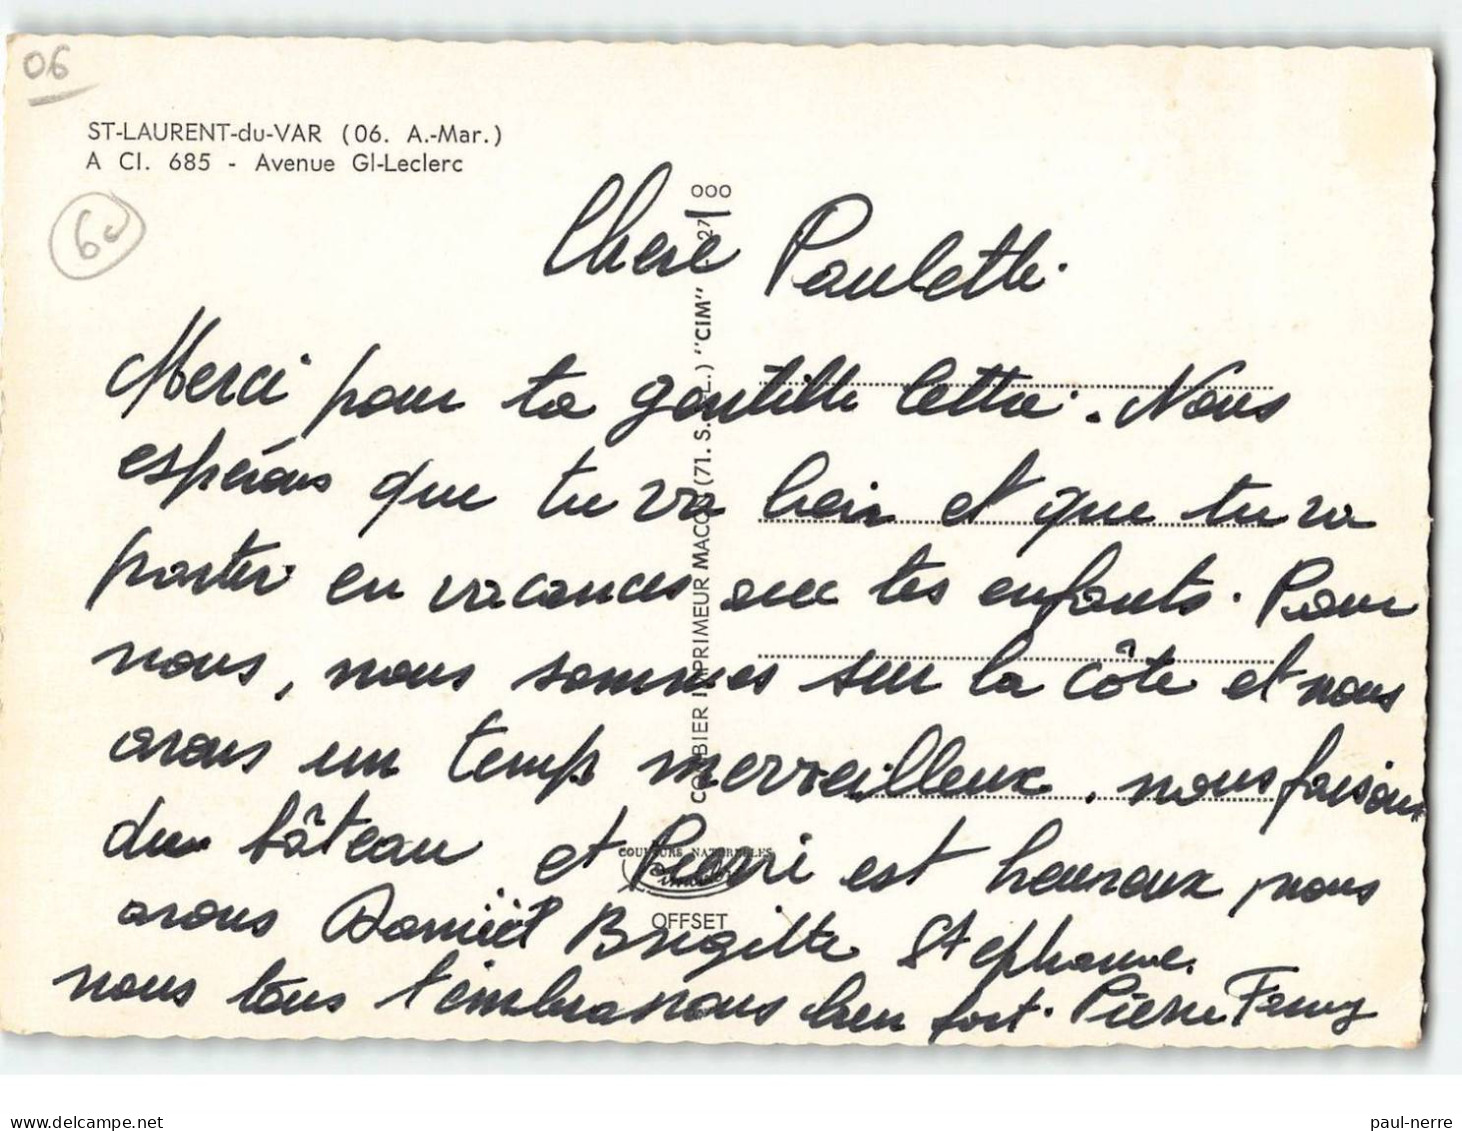 06
ST-LAURENT-du-VAR (06. A.-Mar.)
A CI. 685 - Avenue Gl-Leclerc
Chere Paulette.
Merci pour ta gentille lettre. Nous
espérons que tu va bein et que tu va
partir en vacances avec tes enfants. Pour
nous, nous sommes sur la côte et nous
avons un temps merveilleux, nous faisons
du bâteau et Pierre est heureux, nous
avons Daniel Brigitte Stephane.
nous tous t'embrassons bien fort. Pierre
COMBIER IMPRIMEUR MACON (71. S.-L.) "CIM"
COULEURS NATURELLES
OFFSET
delcampe.net
paul-nerre